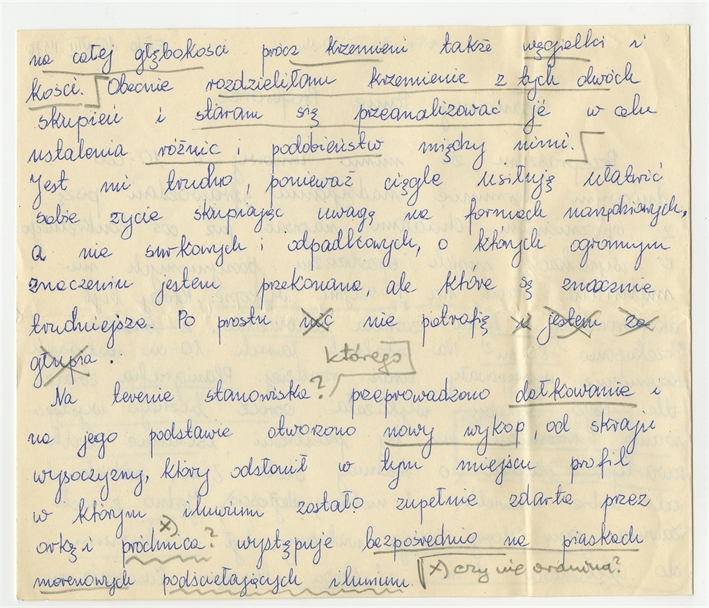 na całej głębokości prócz krzemieni także węgielki i
kości. Obecnie rozdzieliłam krzemienie z tych dwóch
skupień i staram się przeanalizować je w celu
ustalenia różnic i podobieństw między nimi.
Jest mi trudno, ponieważ ciągle usiłuję ułatwić
sobie życie skupiając uwagę na formach narzędziowych,
a nie surkowych i odpadkowych, o których ogromnym
znaczeniu jestem przekonana, ale które są znacznie
trudniejsze. Po prostu nic nie potrafię i jestem za
głupia.
którego
Na terenie stanowiska? przeprowadzono dołkowanie i
na jego podstawie otworzono nowy wykop od skraju
wysoczyzny, który odsłonił w tym miejscu profil
w którym iluwium zostało zupełnie zdarte przez
orkę i próchnica x)? występuje bezpośrednio na piaskach
morenowych podścielających iluwium. x) czy nie ornina?